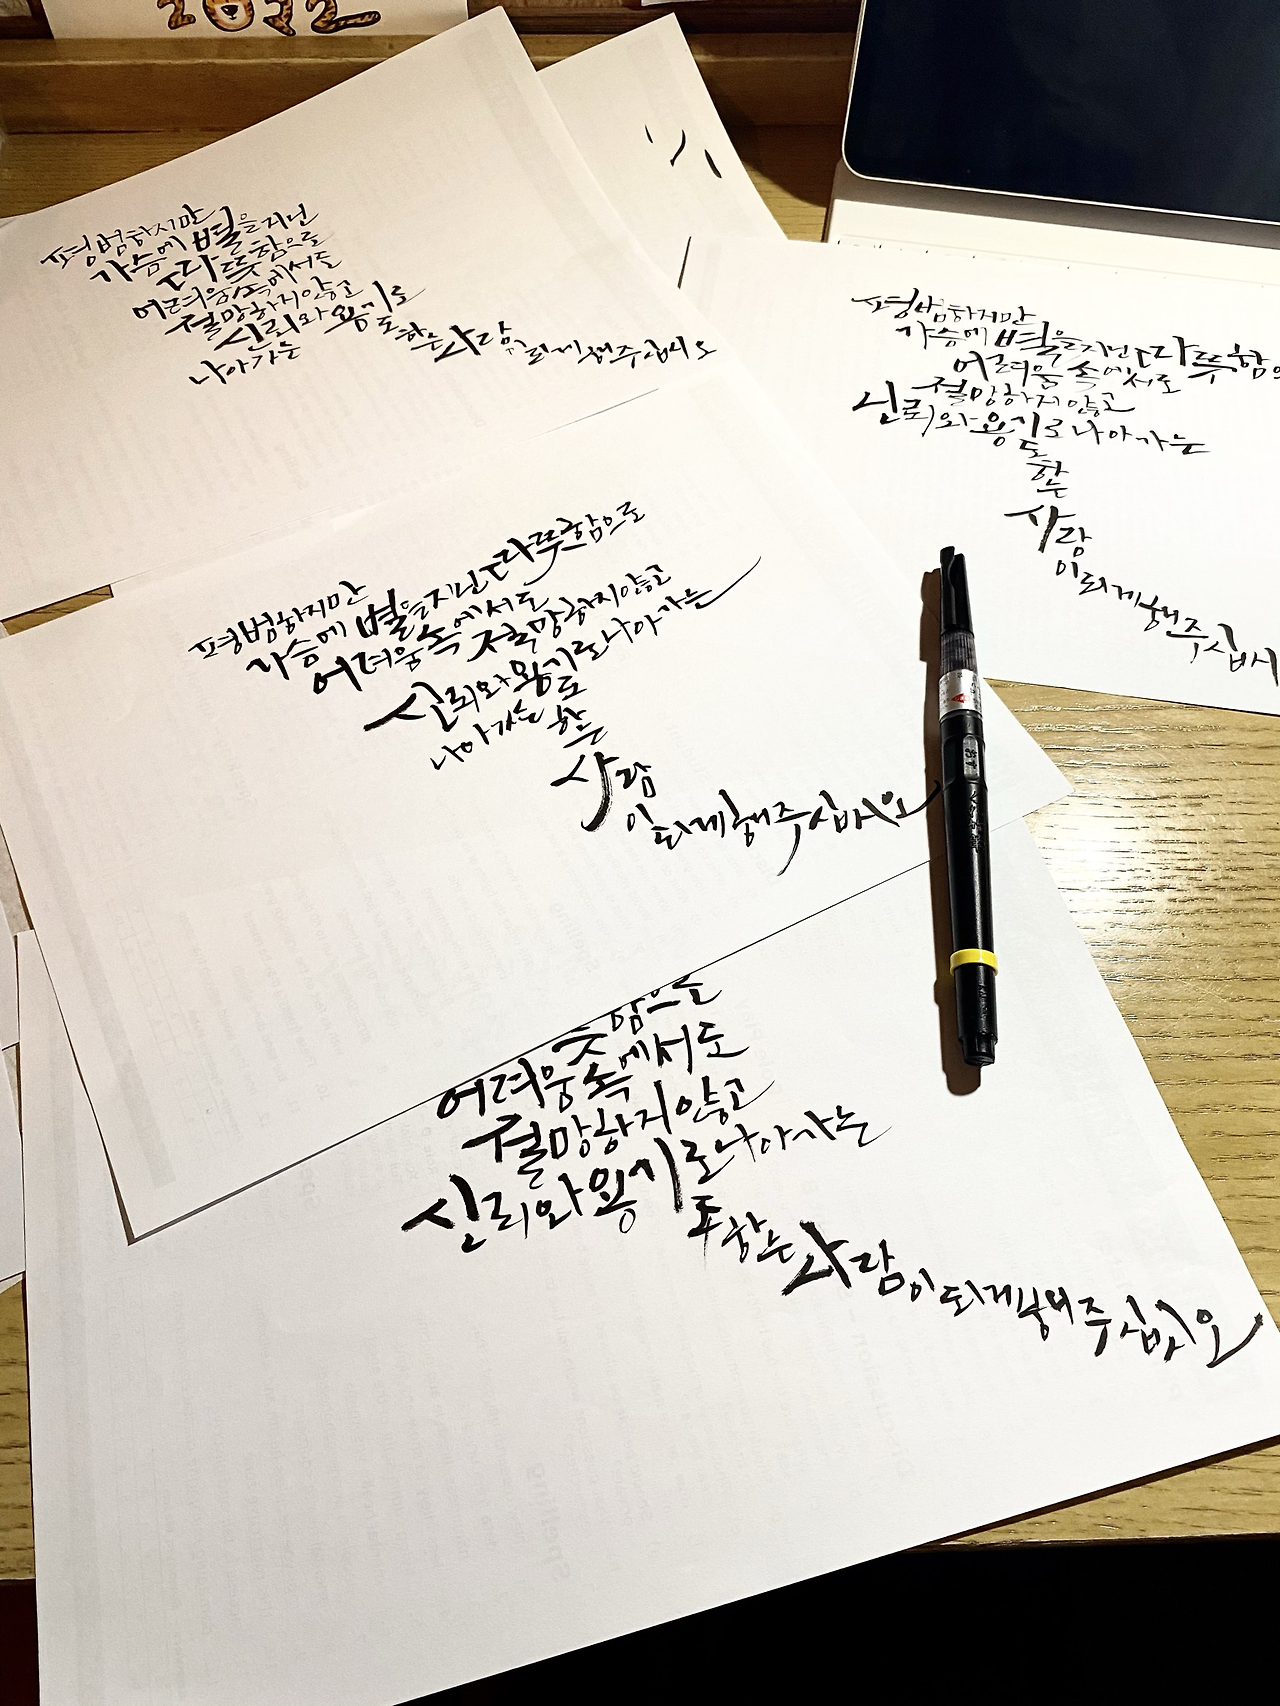 2022
평범하지만
가슴에 별을 지닌
따뜻함으로
어려움 속에서도
절망하지 않고
신뢰와 용기로
나아가는
도하는 사람이 되게 해 주십시오
평범하지만
가슴에 별을 지닌 따뜻함으
어려움 속에서도
절망하지 않고
신뢰와 용기로 나아가는
도
하
는
사람
이 되게 해 주십시
평범하지만
가슴에 별을 지닌 따뜻함으로
어려움 속에서도 절망하지 않고
신뢰와 용기로 나아가는
나아가는
도
하는
사람
이 되게 해 주십시오
뜻함으로
어려움 속에서도
절망하지 않고
신뢰와 용기로 나아가는
도 하는 사람이 되게 해 주십시오